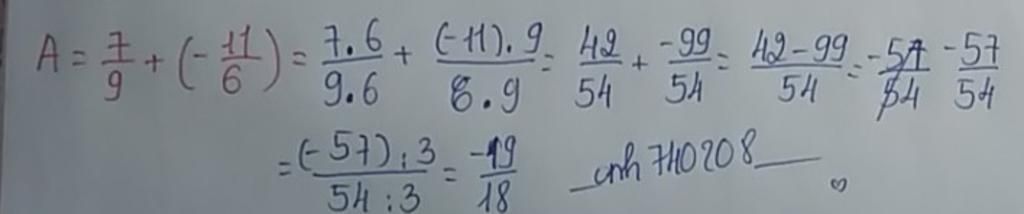 A = 7/9 + (- 11/6) = 7.6/9.6 + (-11).9/6.9 = 42/54 + -99/54 = 42-99/54 = -57/54 -57/54
= (-57):3/54:3 = -19/18 anh 7110208